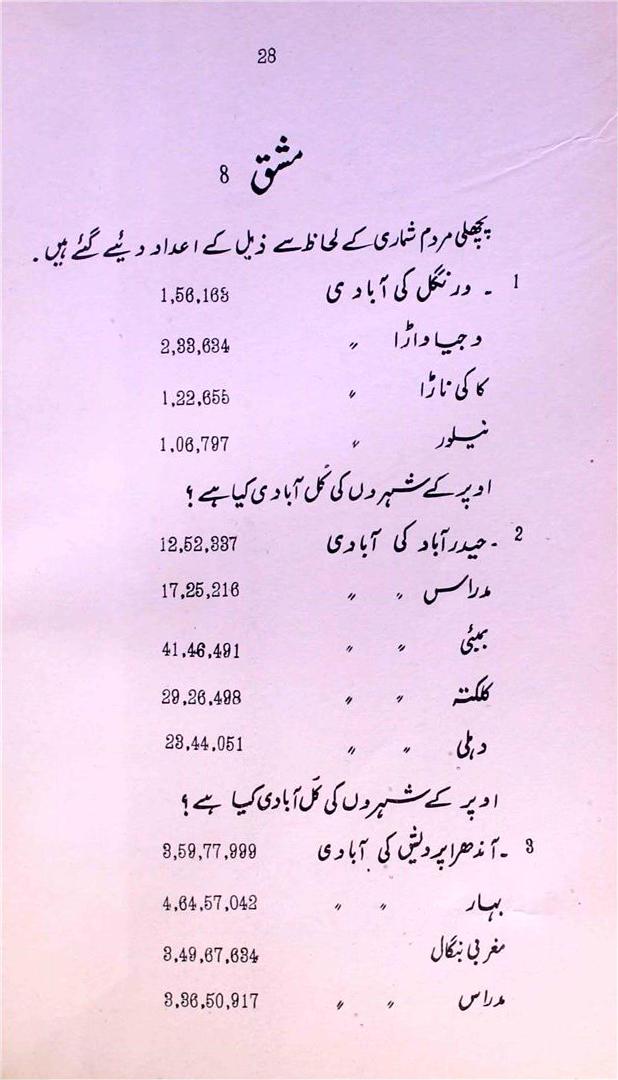 28
مشق 8
پچھلی مردم شماری کے لحاظ سے ذیل کے اعداد دیئے گئے ہیں .
1 - ورنگل کی آبادی 1,56,163
وجیا واڑا 〃 2,33,634
کاکی ناڑا 〃 1,22,655
نیلور 〃 1,06,797
اوپر کے شہروں کی کُل آبادی کیا ہے ؟
2 - حیدرآباد کی آبادی 12,52,337
مدراس 〃 〃 17,25,216
بمبئی 〃 〃 41,46,491
کلکتہ 〃 〃 29,26,498
دہلی 〃 〃 23,44,051
اوپر کے شہروں کی کُل آبادی کیا ہے ؟
3 - آندھرا پردیش کی آبادی 3,59,77,999
بہار 〃 〃 4,64,57,042
مغربی بنگال 3,49,67,634
مدراس 〃 〃 3,36,50,917